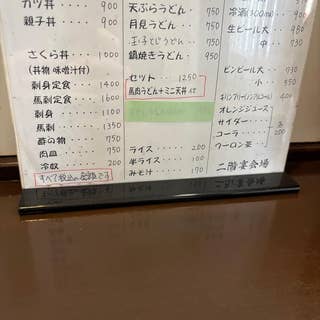 カツ丼 ・・・・ 900
親子丼 ・・・・ 900
さくら丼 ・・・・ 1000
(丼物 味噌汁付)
刺身定食 ・・・ 1400
馬刺定食 ・・・ 1650
刺身 ・・・・ 1100
馬刺 ・・・・ 1350
酢の物 ・・・ 750
肉皿 ・・・・ 750
冷奴 ・・・・ 200
すべて税込の金額です
天ぷらうどん ・・・
月見うどん ・・・ 750
玉子とじうどん 750
鍋焼きうどん ・・・ 950
セット ・・・・ 1250
馬肉うどん+ミニ天丼 付
ライス ・・・・ 200
半ライス ・・・・ 100
みそ汁 ・・・・ 170
冷酒(300ml) 900
生ビール 大 ・・・
中 ・・・ 730
ビンビール 大
キリンフリー(ノンアルコール)
オレンジジュース
サイダー
コーラ ・・・ 200
ウーロン茶
二階宴会場